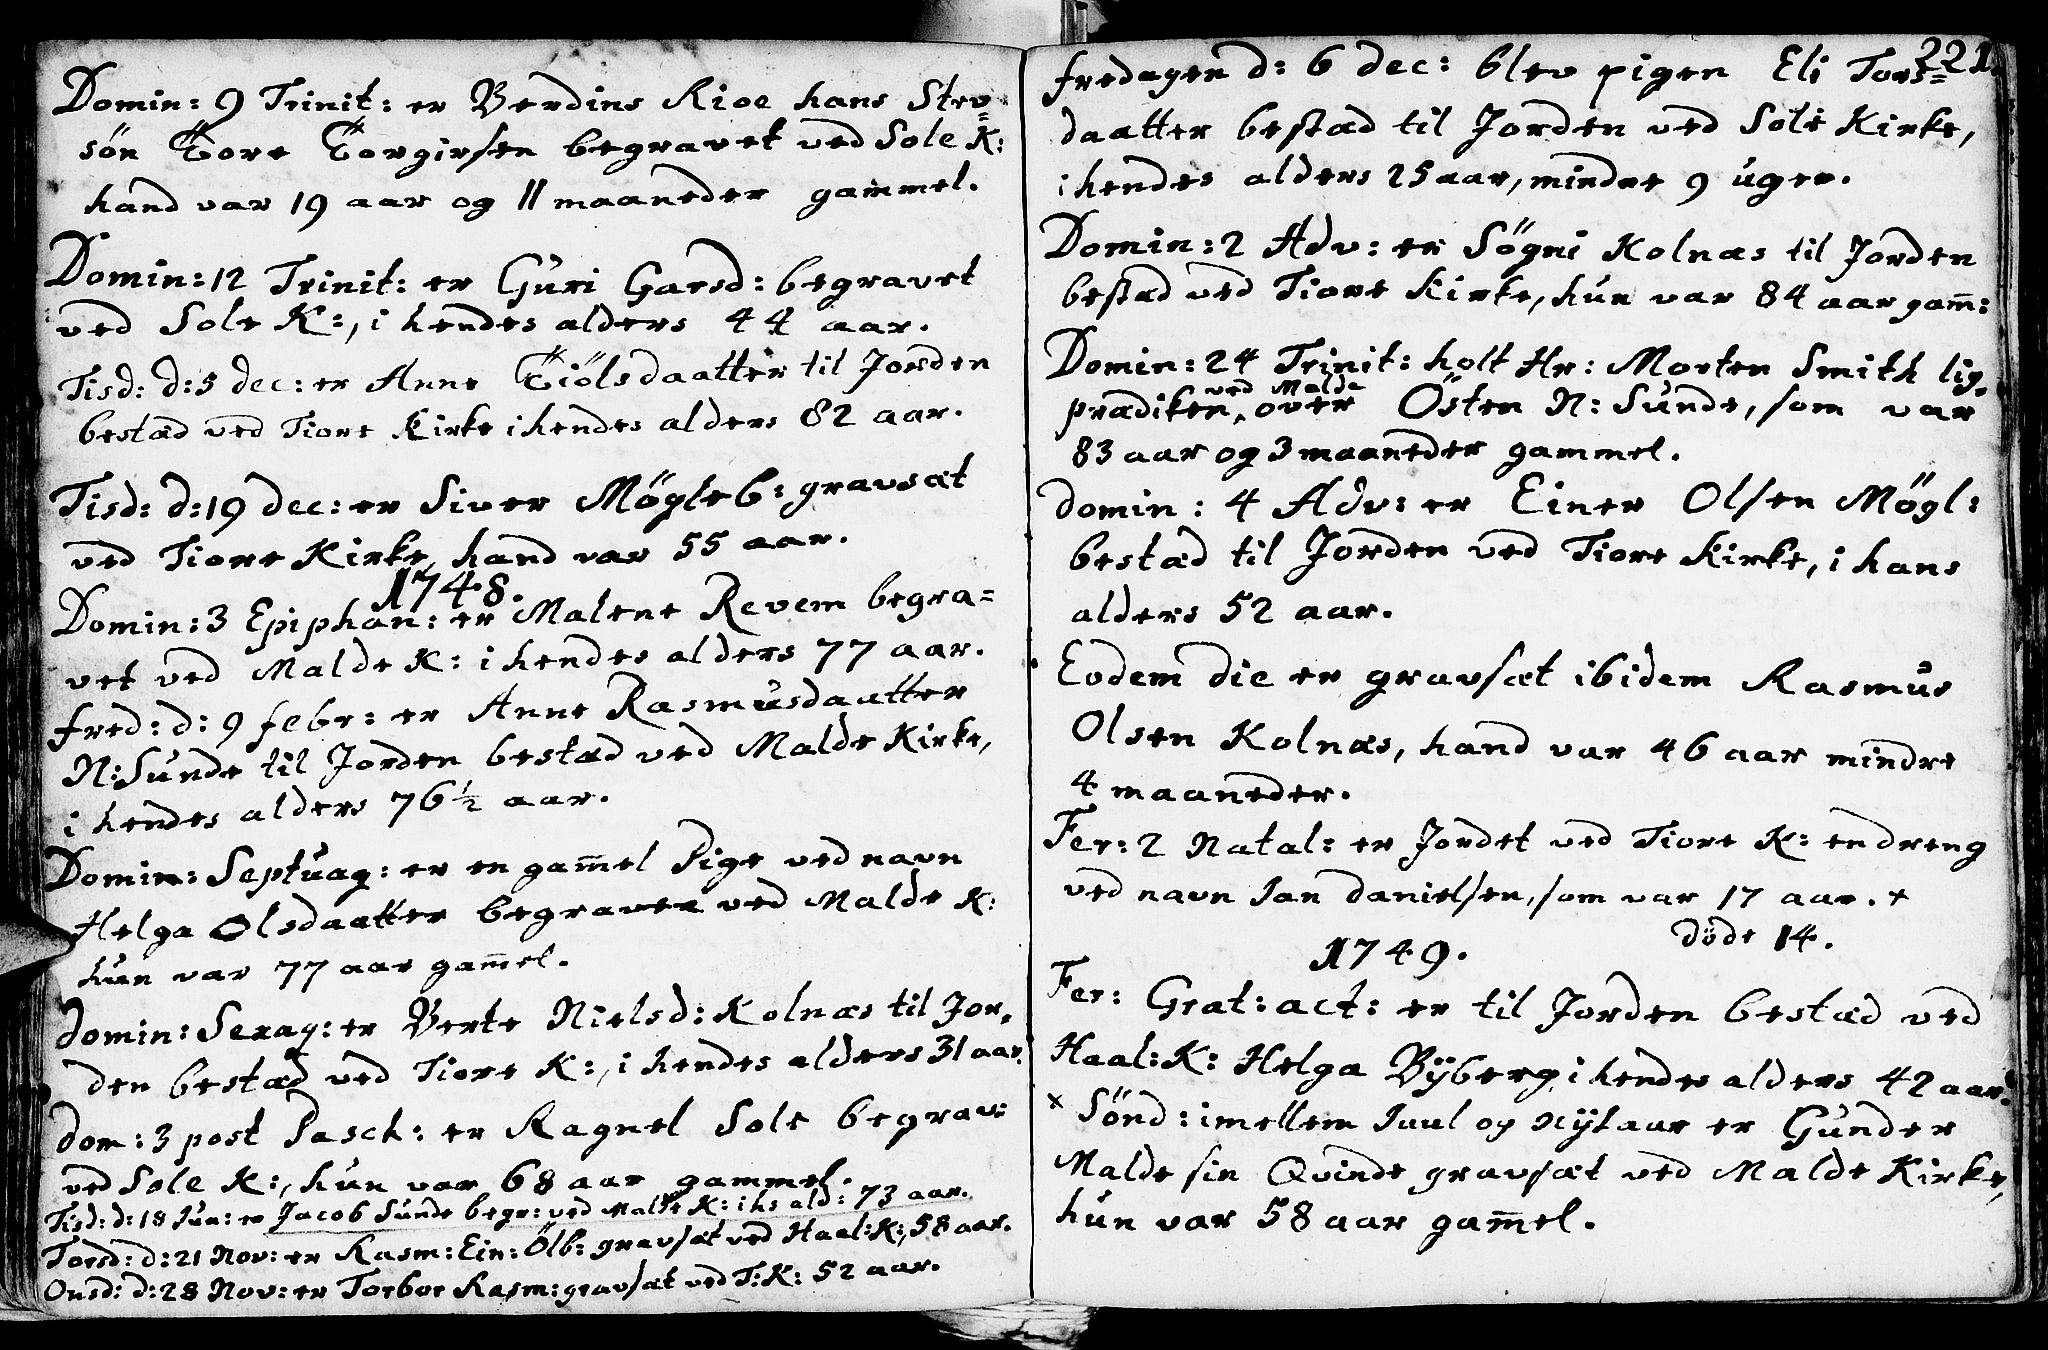 Domin: 9 Trinit: er Berdins Rioe hans Stev=
søn Tore Torgirsen begravet ved Sole K:
hand var 19 aar og 11 maaneder gammel.
Domin: 12 Trinit: er Guri Garsd: begravet
ved Sole K:, i hendes alders 44 aar.
Tisd: d: 5 dec: er Anne Tiölsdaatter til Jorden
bestæd ved Tiore Kirke i hendes alders 82 aar.
Tisd: d: 19 dec: er Siver Mögleb: gravsæt
ved Tiore Kirke, hand var 55 aar.
1748.
Domin: 3 Epiphan: er Malene Revem begra=
vet ved Malde K: i hendes alders 77 aar.
fred: d: 9 febr: er Anne Rasmusdaatter
N: Sunde til Jorden bestæd ved Malde Kirke,
i hendes alders 76 1/2 aar.
Domin: Septuag: er en gam̄el Pige ved navn
Helga Olsdaatter begraven ved Malde K:
hun var 77 aar gam̄el.
domin: Sexag: er Berte Nielsd: Kolnæs til Jor=
den bestæd ved Tiore K:, i hendes alders 31 aar.
dom: 3 post Pasch: er Ragnel Sole begrav:
ved Sole K:, hun var 68 aar gammel.
Tisd: d: 18 Jun: er Jacob Sunde begr: ved Malde K: i hs ald: 73 aar.
Torsd: d: 21 Nov: er Rasm: Ein: Ölb: gravsæt ved Haal: K:, 58 aar.
Onsd: d: 28 Nov: er Torbor Rasm: gravsæt ved T: K: 52 aar.
221.
fredagen d: 6 dec: blev pigen Eli Tors=
daatter bestæd til Jorden ved Sole Kirke,
i hendes alders 25 aar, mindre 9 uger.
Domin: 2 Adv: er Sögni Kolnæs til Jorden
bestæd ved Tiore Kirke, hun var 84 aar gam̄:
Domin: 24 Trinit: holt Hr: Morten Smith lig=
ved Malde
prædiken, over Östen N: Sunde, som var
83 aar og 3 maaneder gammel.
domin: 4 Adv: er Einer Olsen Mögl:
bestæd til Jorden ved Tiore Kirke, i hans
alders 52 aar.
Eodem die er gravsæt ibidem Rasmus
Olsen Kolnæs, hand var 46 aar mindre
4 maaneder.
Fer: 2 Natal: er Jordet ved Tiore K: en dreng
ved navn Jan Danielsen, som var 17 aar. +
døde 14.
1749.
Fer: Grat: act: er til Jorden bestæd ved
Haal: K: Helga Byberg i hendes alders 42 aar.
+ Sönd: imellem Juul og Nytaar er Gunder
Malde sin Qvinde gravsæt ved Malde Kirke,
hun var 58 aar gam̄el.